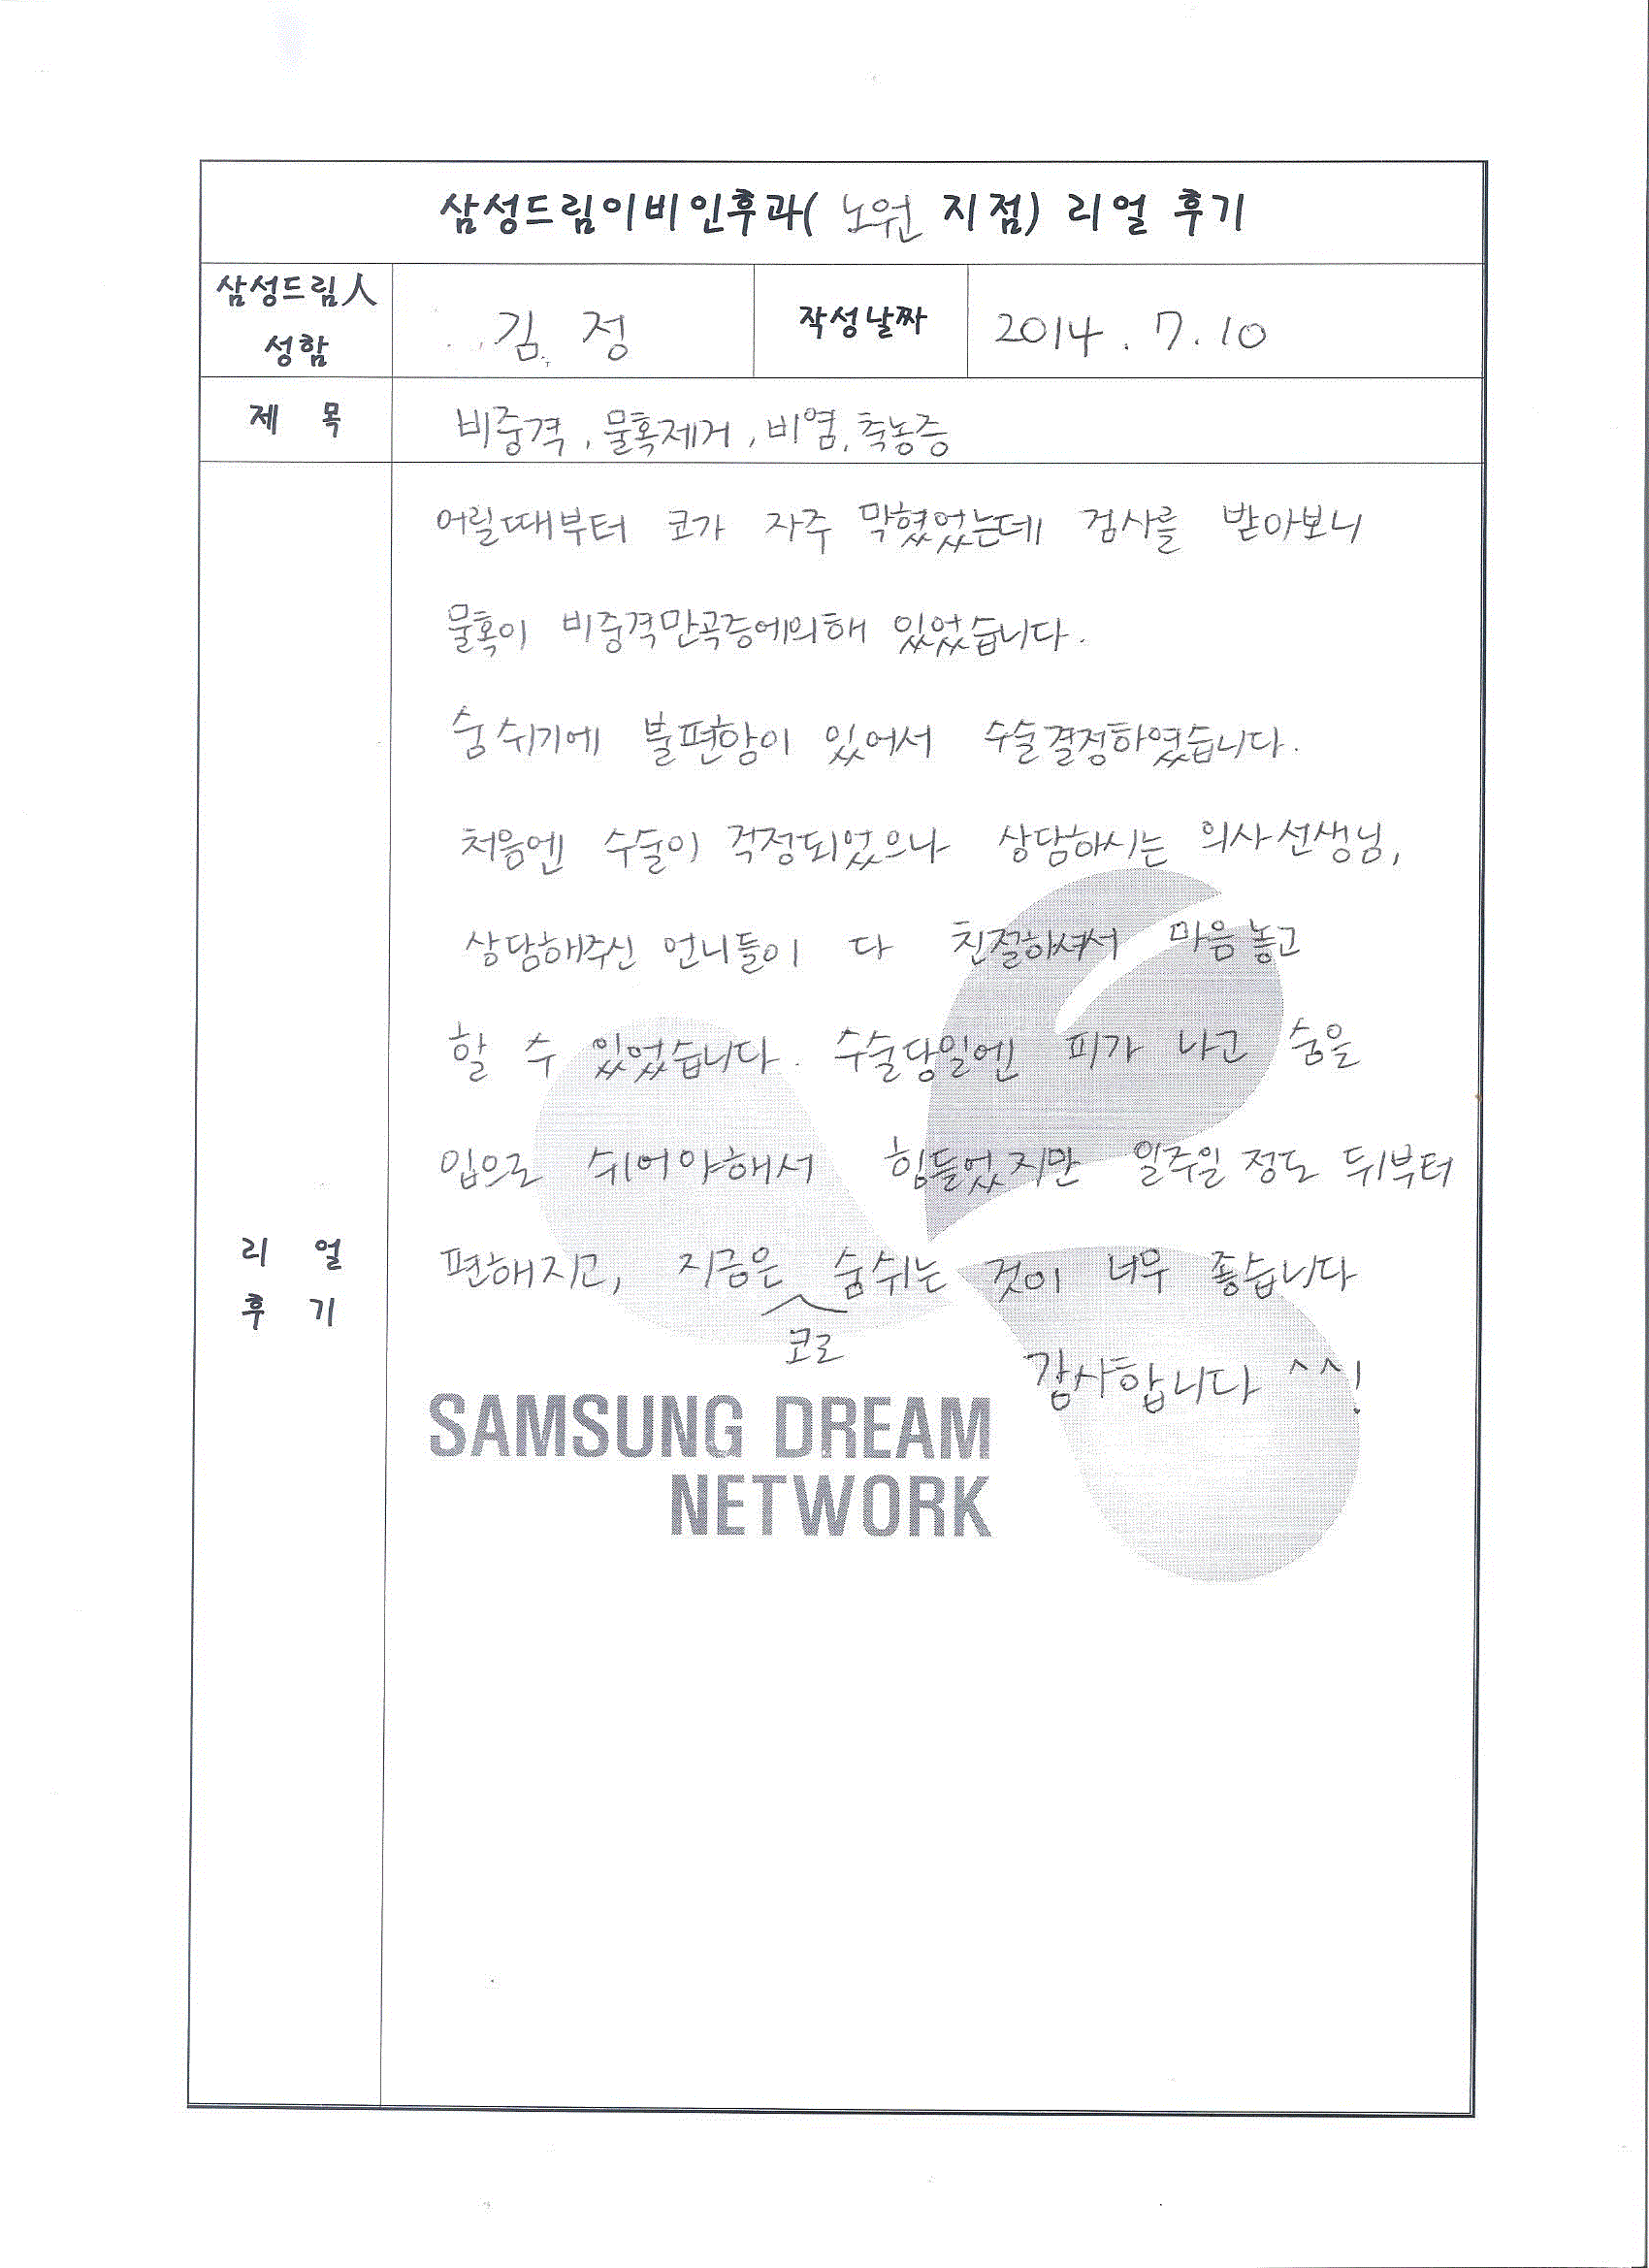 삼성드림이비인후과( 노원 지점) 리얼 후기
삼성드림人
성함
김 정
작성날짜
2014. 7. 10
제 목
비중격, 물혹제거, 비염, 축농증
어릴때부터 코가 자주 막혔었는데 검사를 받아보니
물혹이 비중격만곡증에의해 있었습니다.
숨쉬기에 불편함이 있어서 수술결정하였습니다.
처음엔 수술이 걱정되었으나 상담하시는 의사선생님,
상담해주신 언니들이 다 친절하셔서 마음놓고
할 수 있었습니다. 수술당일엔 피가 나고 숨을
입으로 쉬어야해서 힘들었지만 일주일 정도 뒤부터
편해지고, 지금은 숨쉬는 것이 너무 좋습니다
코로
감사합니다 ^^!
리 얼
후 기
SAMSUNG DREAM
NETWORK